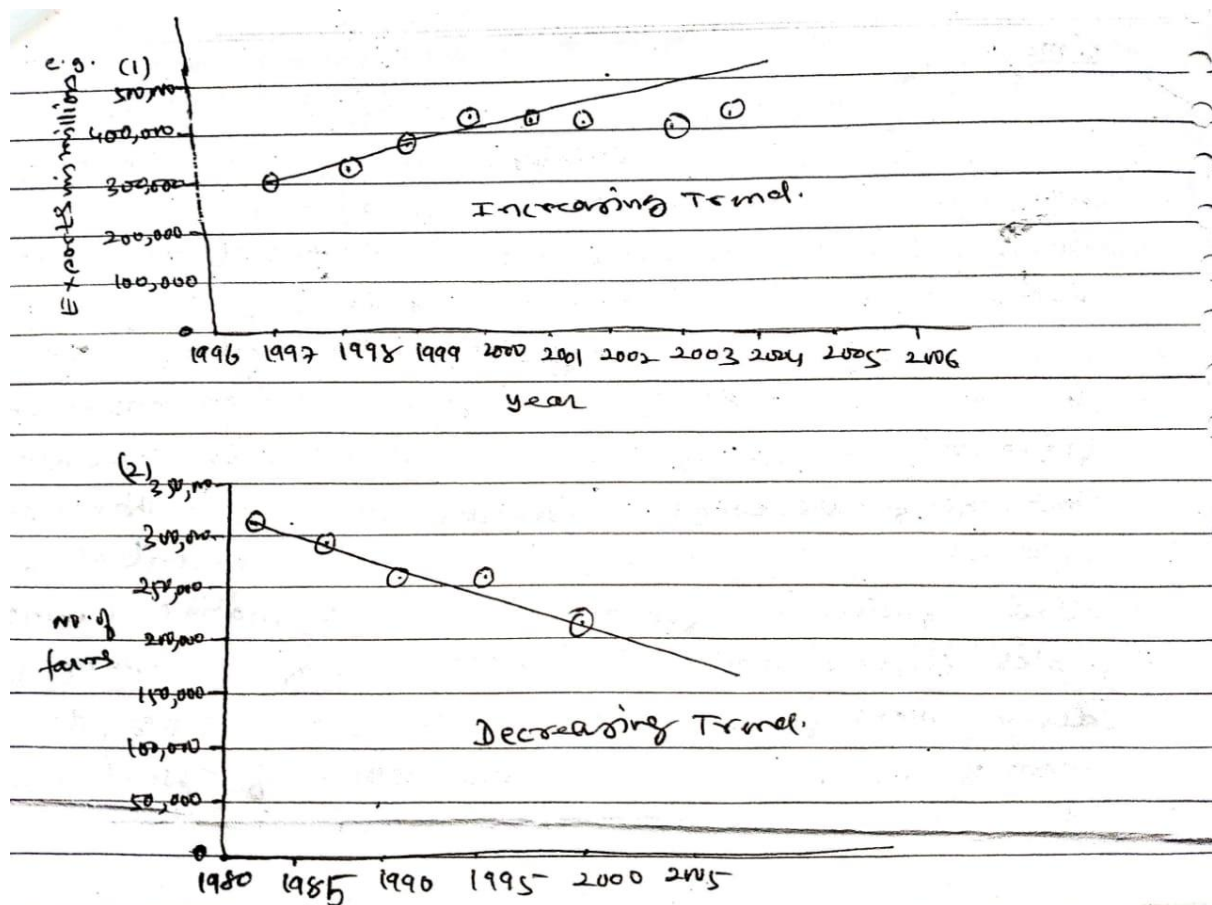 e.g. (1)
Exports in millions
500,000
400,000
300,000
200,000
100,000
0
Increasing Trend.
1996 1997 1998 1999 2000 2001 2002 2003 2004 2005 2006
year
(2)
350,000
300,000
250,000
No. of
farms
200,000
150,000
100,000
50,000
0
Decreasing Trend.
1980 1985 1990 1995 2000 2005